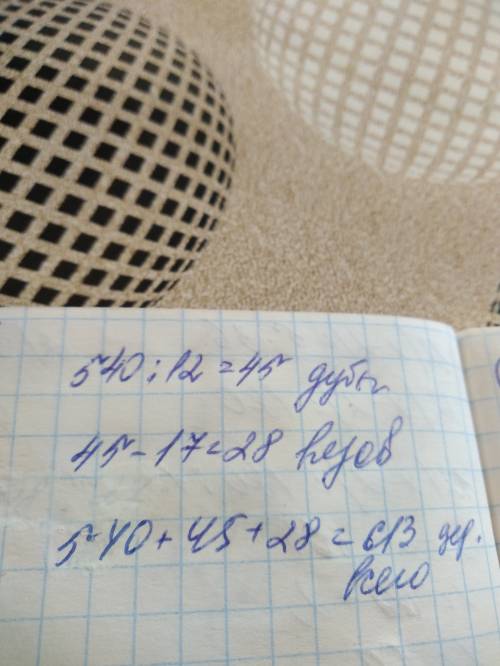 540 : 12 = 45 дубы
45 - 17 = 28 вязов
540 + 45 + 28 = 613 дер.
всего